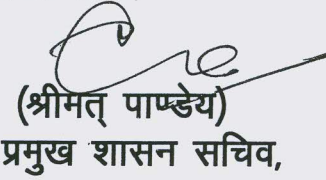 (श्रीमत् पाण्डेय)
प्रमुख शासन सचिव,